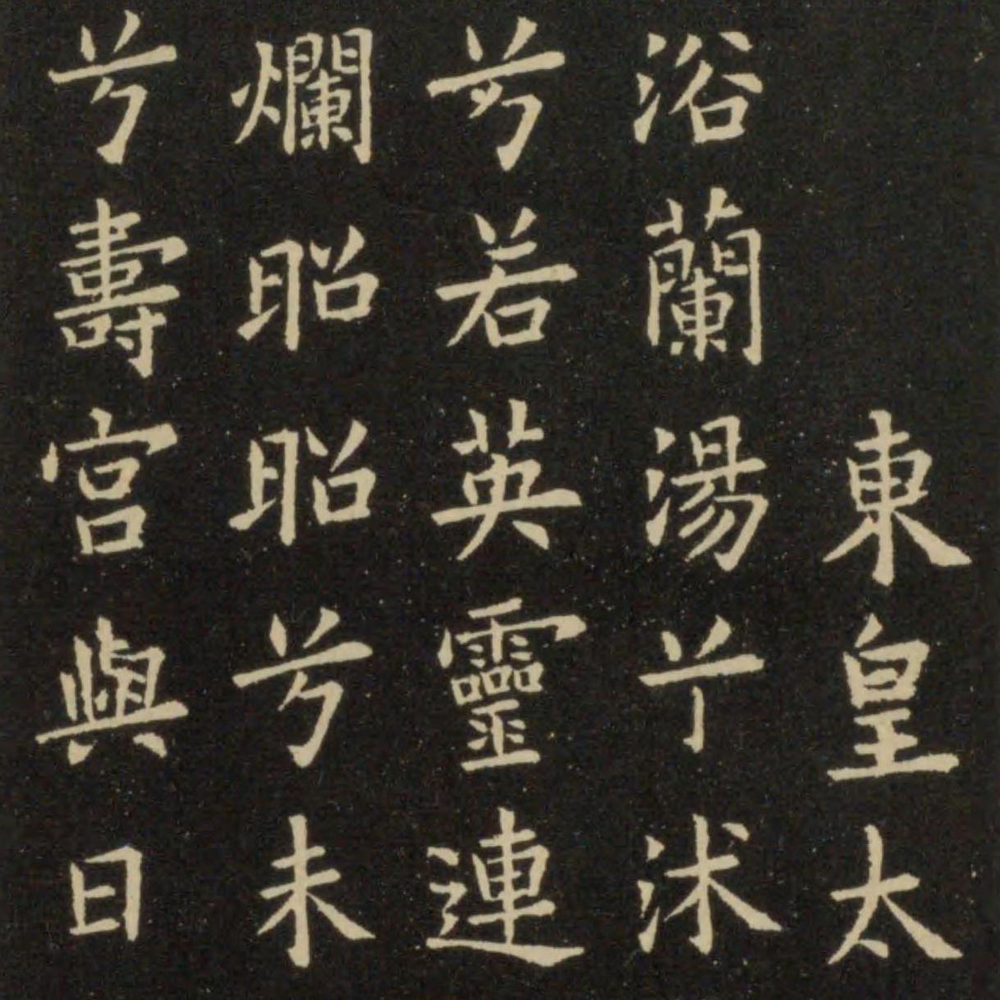 東皇太
浴蘭湯兮沐
兮若英靈連
爛昭昭兮未
兮壽宮與日